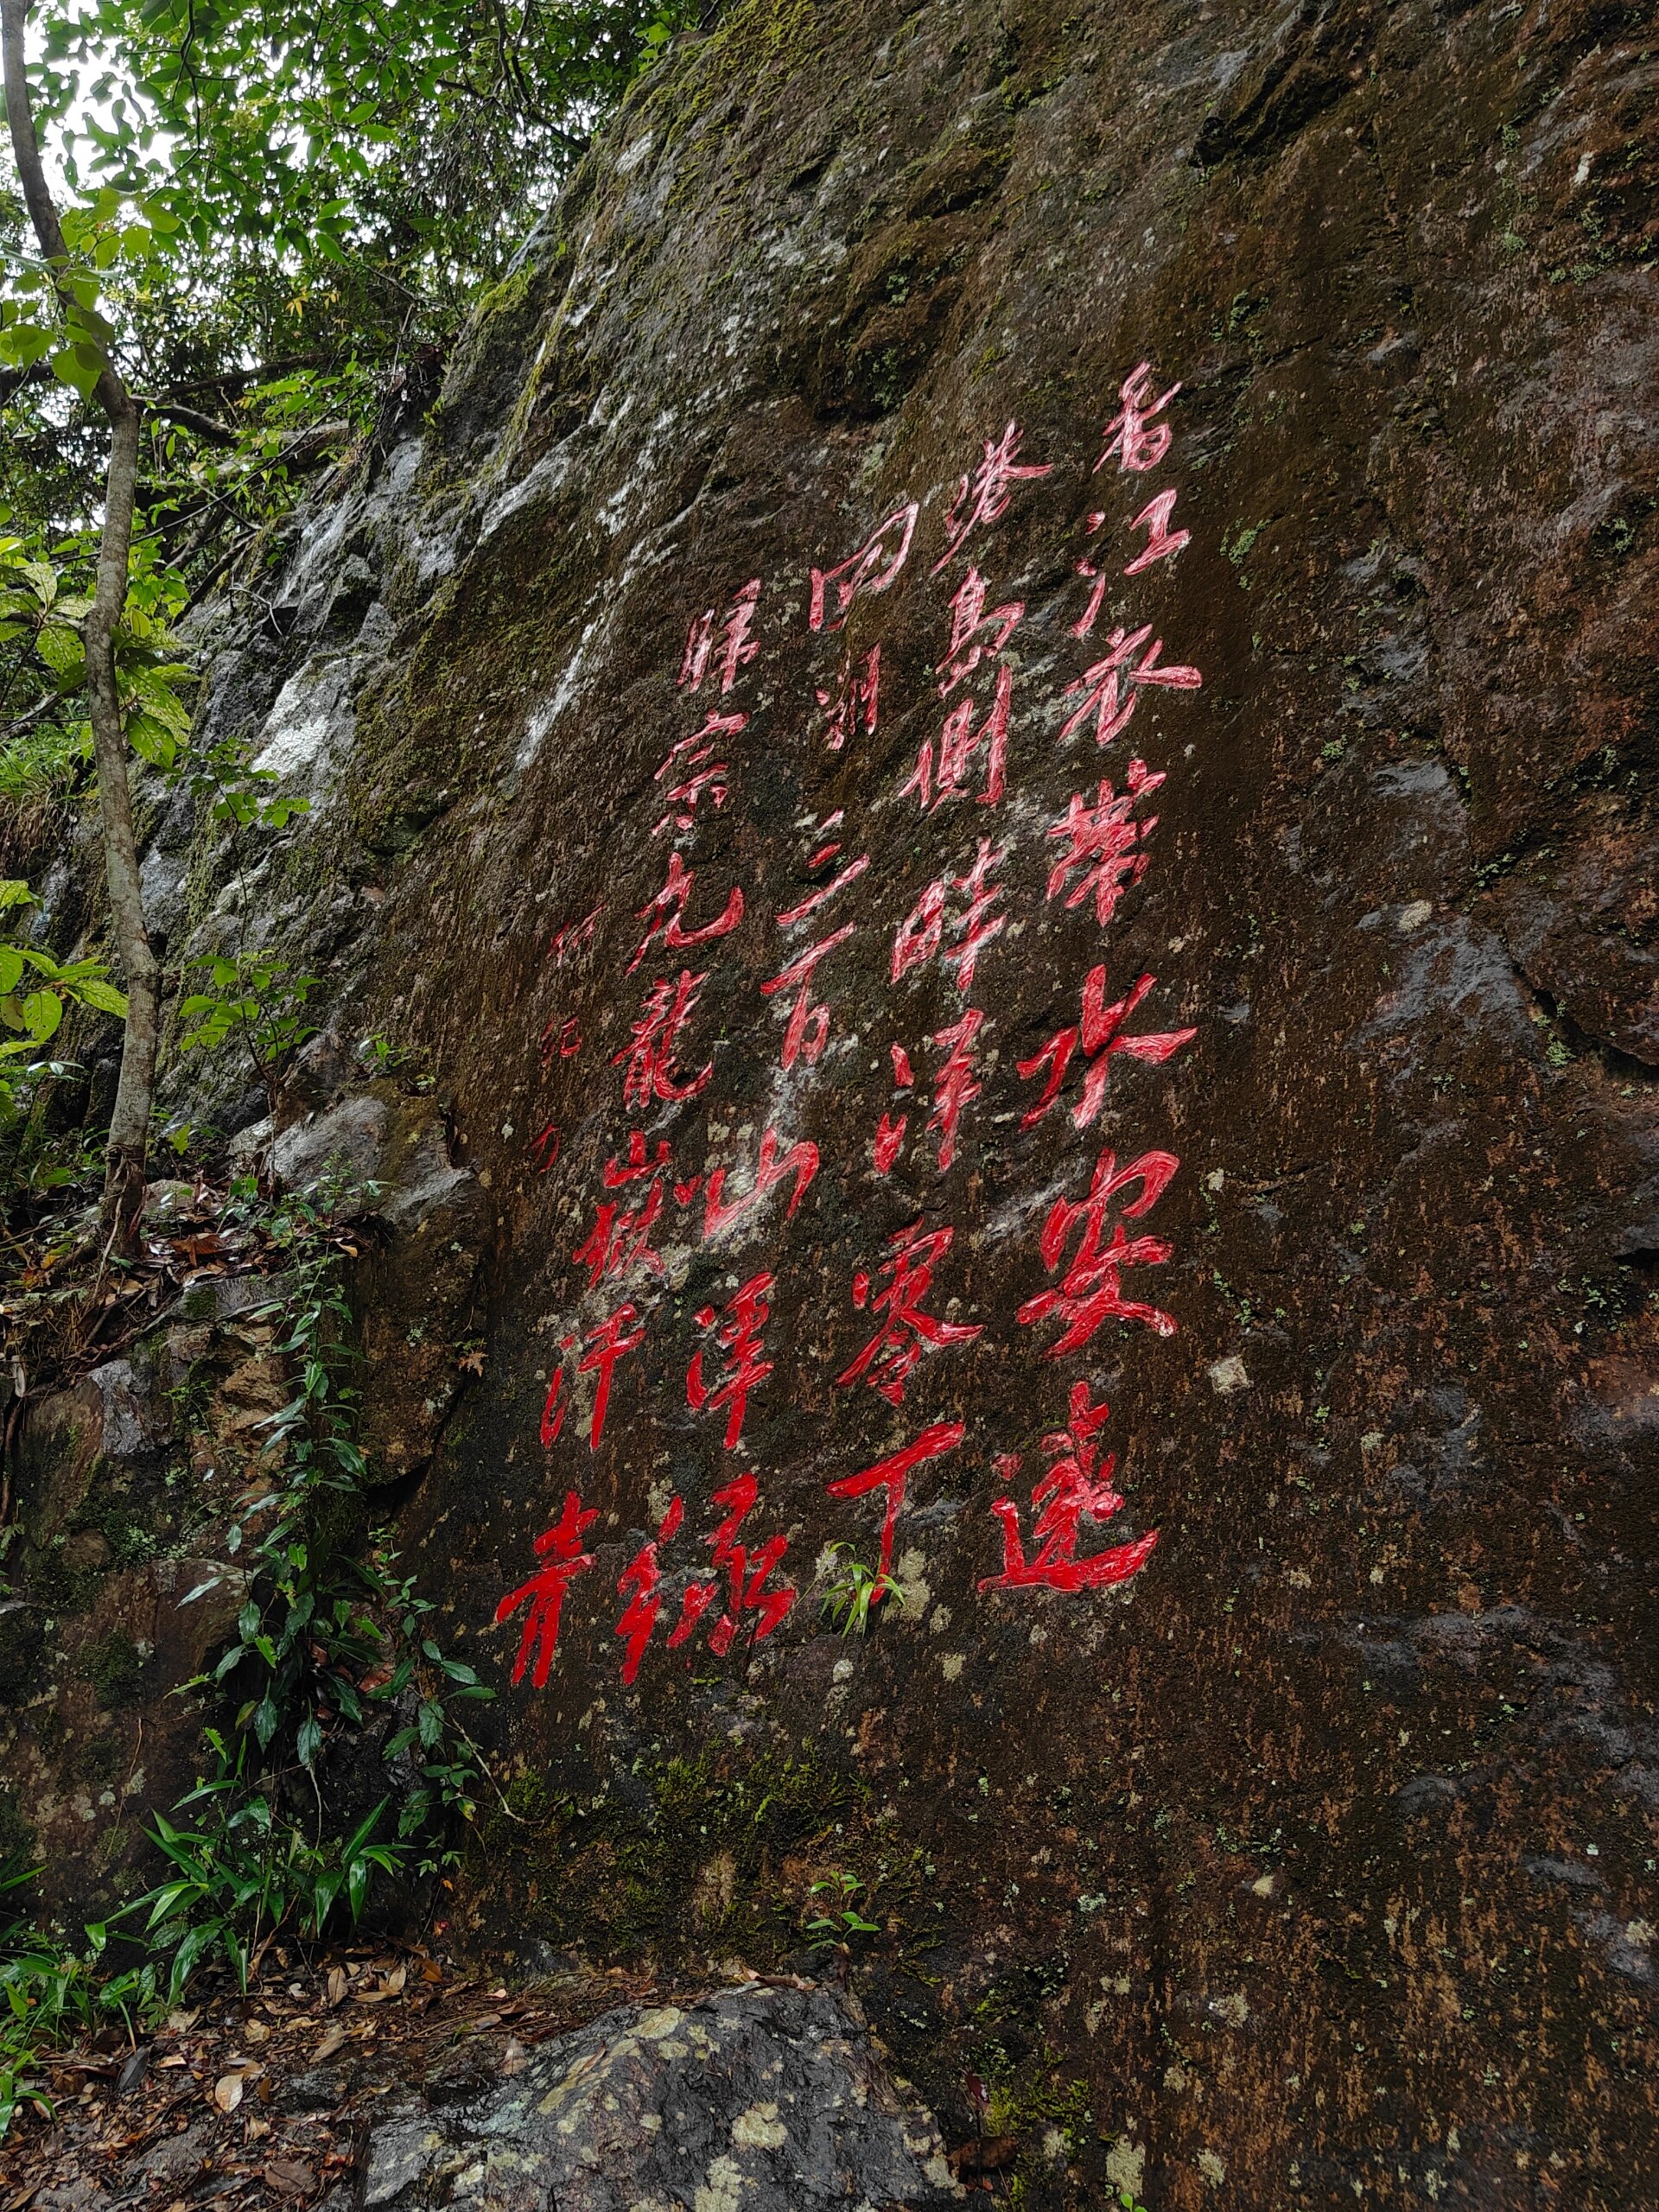 香江衣帶水安遠
港島側畔洋零丁
回潮三百山澤綠
歸宗九龍嶽汗青